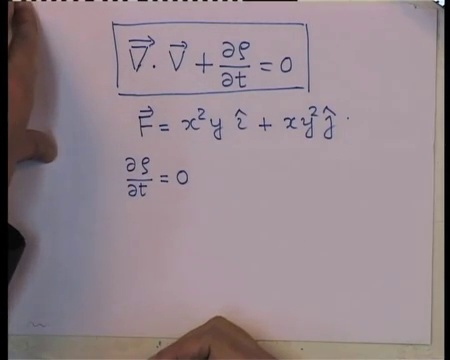 ∇⃗ · V⃗ + ∂ρ/∂t = 0
F⃗ = x²y î + xy² ĵ ·
∂ρ/∂t = 0